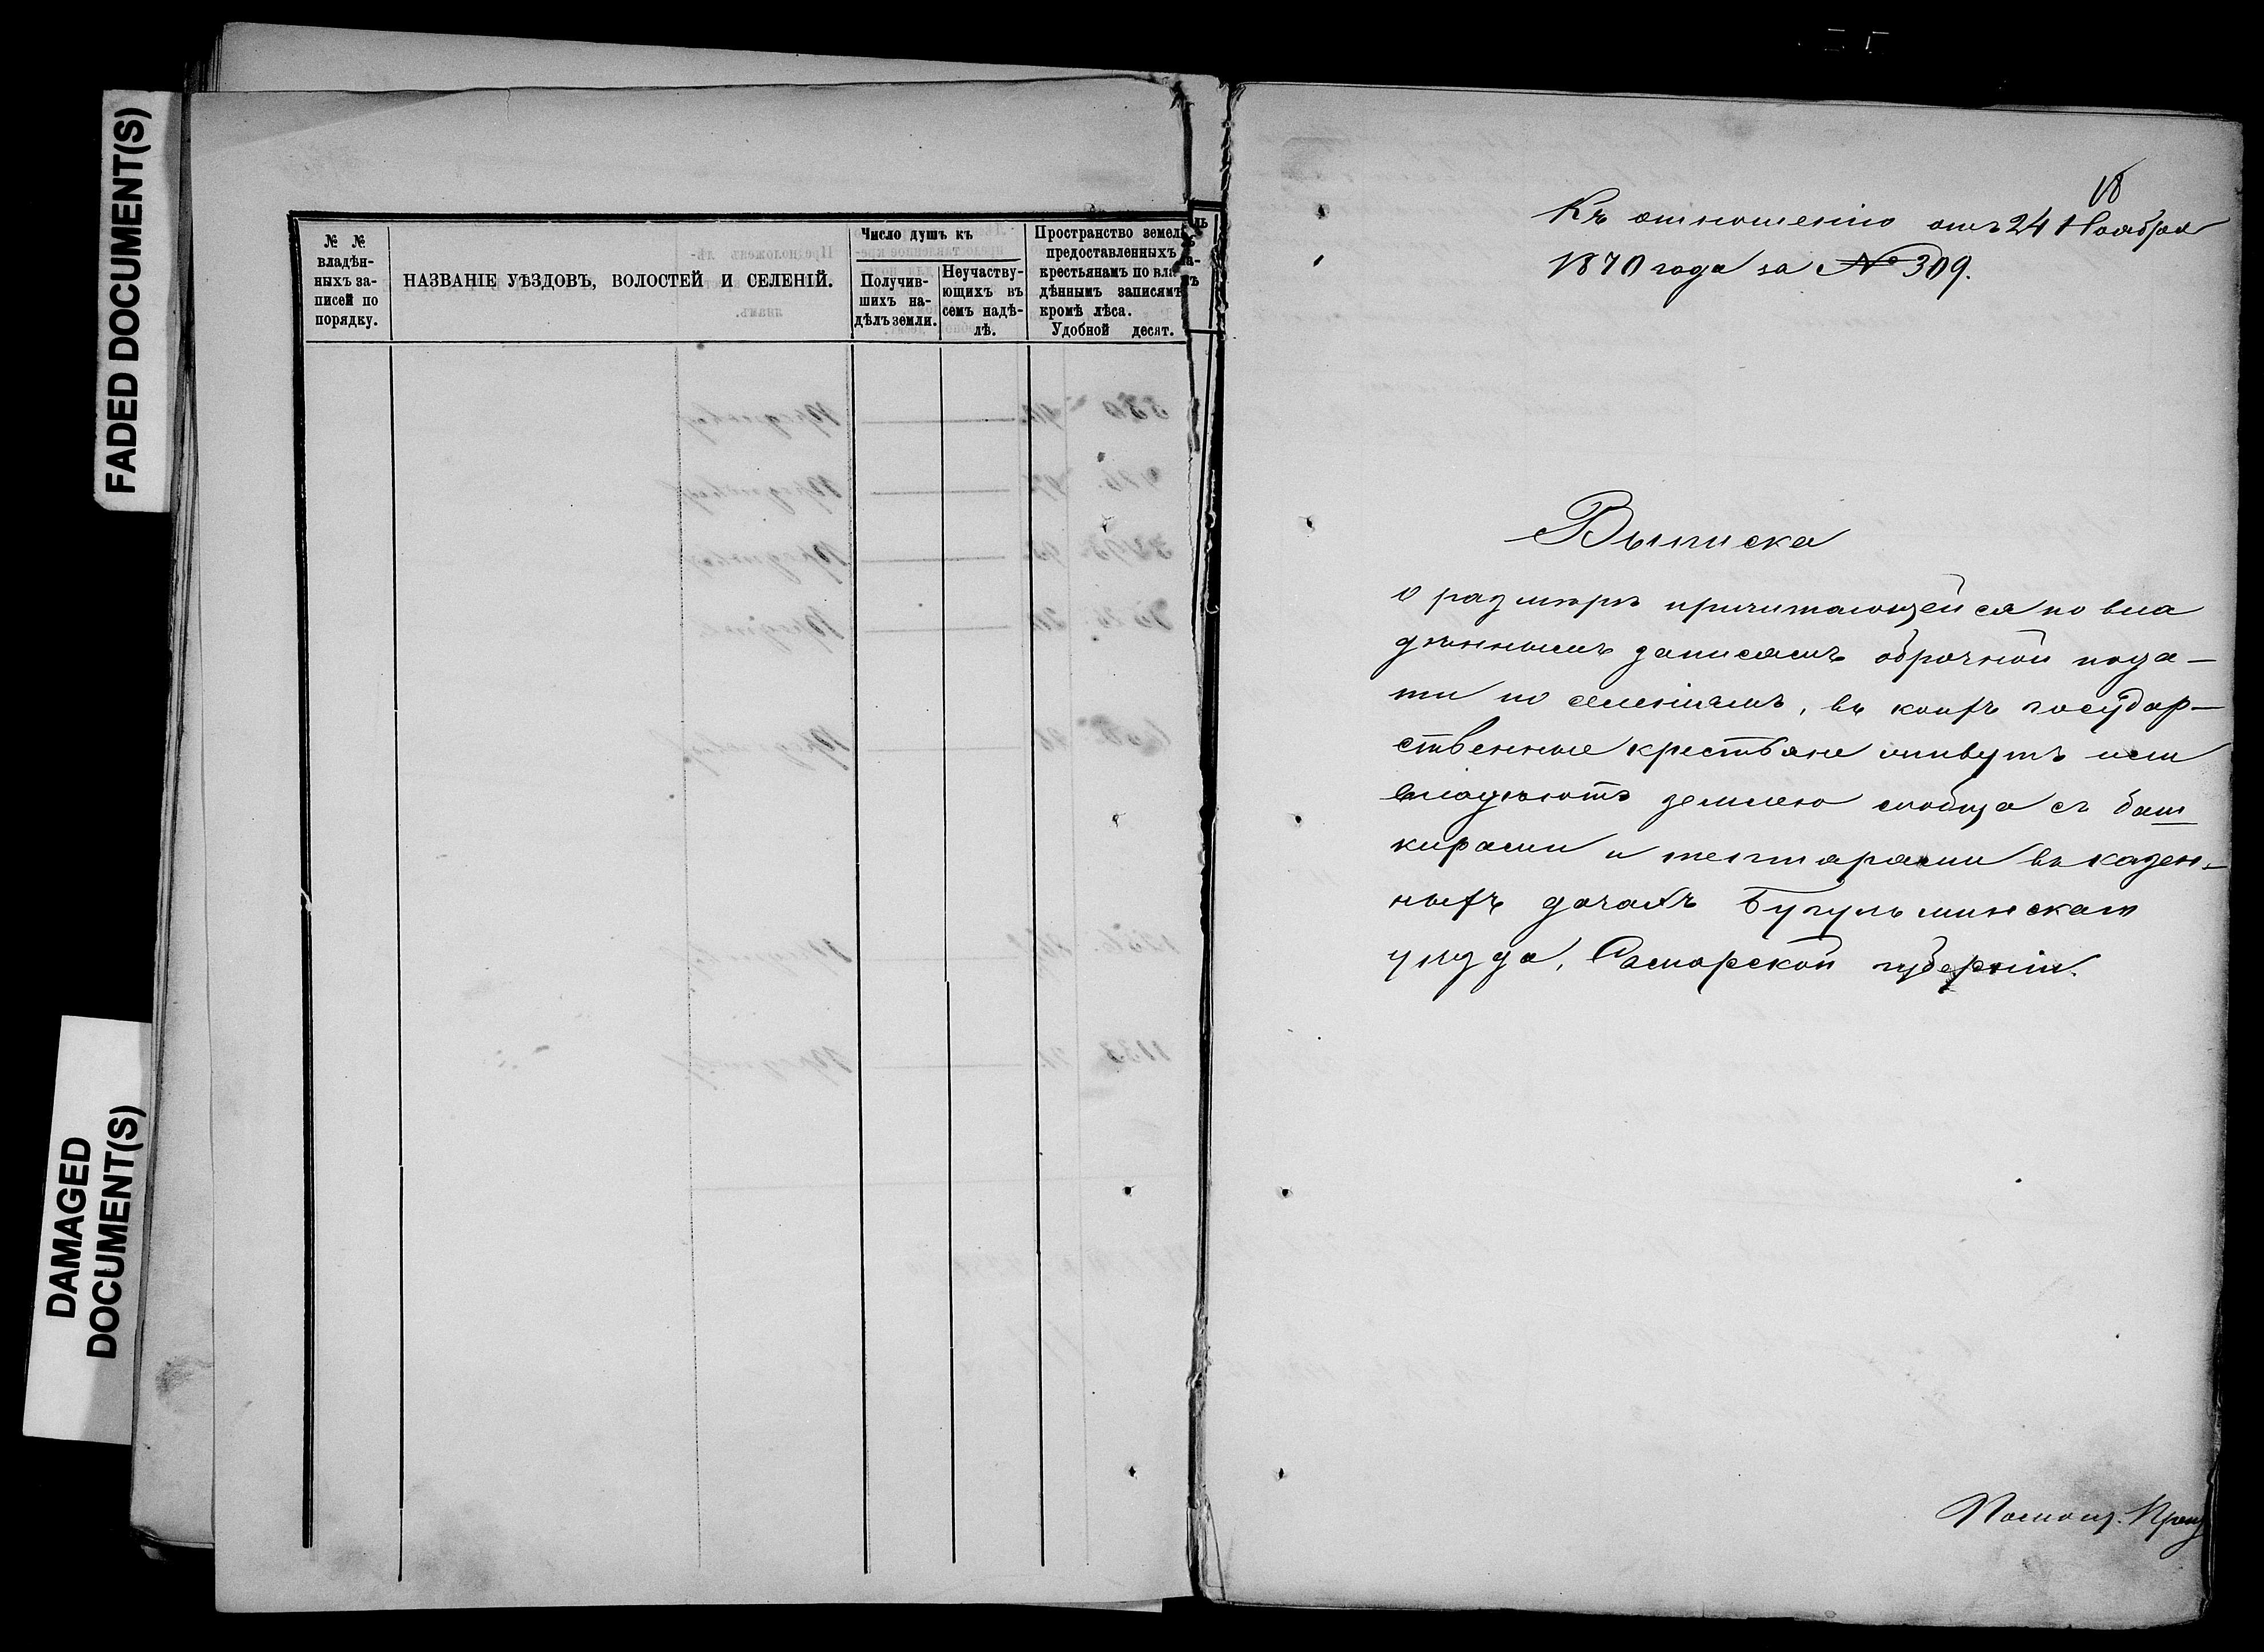 FADED DOCUMENT(S)
DAMAGED
DOCUMENT(S)
№ №
владѣн-
ныхъ за-
писей по
порядку.
НАЗВАНІЕ УѢЗДОВЪ, ВОЛОСТЕЙ И СЕЛЕНІЙ.
Число душъ къ
Получив-
шихъ на-
дѣлъ земли.
Неучаству-
ющихъ въ
семъ надѣ-
лѣ.
Пространство земель
предоставленныхъ
крестьянамъ по вла-
дѣннымъ записямъ
кромѣ лѣса.
Удобной десят.
18
Къ отношенію отъ 24 Ноября
1870 года за № 309.
Выписка
о размѣрѣ причитающейся по вла
дѣннымъ записямъ оброчной пода-
ти по селеніямъ, въ коихъ государ-
ственные крестьяне живутъ или
владѣютъ землею сообща съ баш
кирами и тептярами въ казен-
ныхъ дачахъ Бугульминскаго
уѣзда, Самарской губерніи.
Помощ.